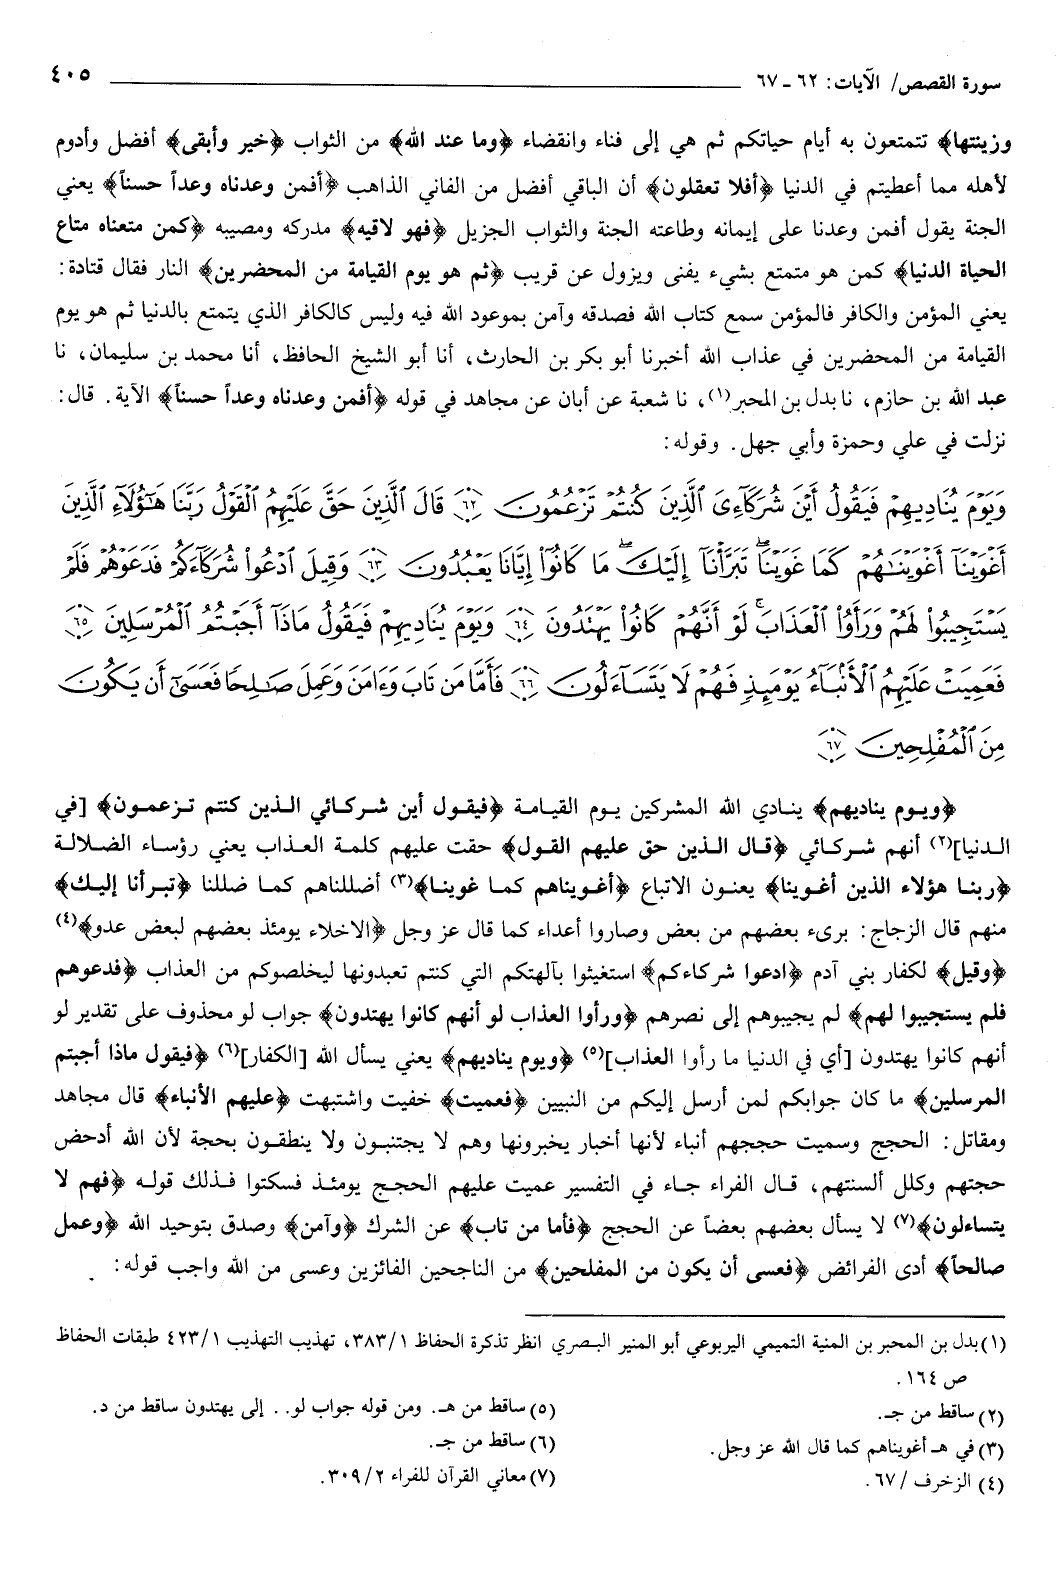 سورة القصص/ الآيات: ٦٢ - ٦٧ ٤٠٥
وزينتها﴾ تتمتعون به أيام حياتكم ثم هي إلى فناء وانقضاء ﴿وما عند الله﴾ من الثواب ﴿خير وأبقى﴾ أفضل وأدوم
لأهله مما أعطيتم في الدنيا ﴿أفلا تعقلون﴾ أن الباقي أفضل من الفاني الذاهب ﴿أفمن وعدناه وعداً حسناً﴾ يعني
الجنة يقول أفمن وعدنا على إيمانه وطاعته الجنة والثواب الجزيل ﴿فهو لاقيه﴾ مدركه ومصيبه ﴿كمن متعناه متاع
الحياة الدنيا﴾ كمن هو متمتع بشيء يفنى ويزول عن قريب ﴿ثم هو يوم القيامة من المحضرين﴾ النار فقال قتادة:
يعني المؤمن والكافر فالمؤمن سمع كتاب الله فصدقه وآمن بموعود الله فيه وليس كالكافر الذي يتمتع بالدنيا ثم هو يوم
القيامة من المحضرين في عذاب الله أخبرنا أبو بكر بن الحارث، أنا أبو الشيخ الحافظ، أنا محمد بن سليمان، نا
عبد الله بن حازم، نا بدل بن المحبر(١)، نا شعبة عن أبان عن مجاهد في قوله ﴿أفمن وعدناه وعداً حسناً﴾ الآية. قال:
نزلت في علي وحمزة وأبي جهل. وقوله:
وَيَوْمَ يُنَادِيهِمْ فَيَقُولُ أَيْنَ شُرَكَآءِىَ ٱلَّذِينَ كُنتُمْ تَزْعُمُونَ ﴿٦٢﴾ قَالَ ٱلَّذِينَ حَقَّ عَلَيْهِمُ ٱلْقَوْلُ رَبَّنَا هَٰٓؤُلَآءِ ٱلَّذِينَ
أَغْوَيْنَآ أَغْوَيْنَٰهُمْ كَمَا غَوَيْنَا ۖ تَبَرَّأْنَآ إِلَيْكَ ۖ مَا كَانُوٓا۟ إِيَّانَا يَعْبُدُونَ ﴿٦٣﴾ وَقِيلَ ٱدْعُوا۟ شُرَكَآءَكُمْ فَدَعَوْهُمْ فَلَمْ
يَسْتَجِيبُوا۟ لَهُمْ وَرَأَوُا۟ ٱلْعَذَابَ ۚ لَوْ أَنَّهُمْ كَانُوا۟ يَهْتَدُونَ ﴿٦٤﴾ وَيَوْمَ يُنَادِيهِمْ فَيَقُولُ مَاذَآ أَجَبْتُمُ ٱلْمُرْسَلِينَ ﴿٦٥﴾
فَعَمِيَتْ عَلَيْهِمُ ٱلْأَنۢبَآءُ يَوْمَئِذٍ فَهُمْ لَا يَتَسَآءَلُونَ ﴿٦٦﴾ فَأَمَّا مَن تَابَ وَءَامَنَ وَعَمِلَ صَٰلِحًا فَعَسَىٰٓ أَن يَكُونَ
مِنَ ٱلْمُفْلِحِينَ ﴿٦٧﴾
﴿ويوم يناديهم﴾ ينادي الله المشركين يوم القيامة ﴿فيقول أين شركائي الذين كنتم تزعمون﴾ [في
الدنيا](٢) أنهم شركائي ﴿قال الذين حق عليهم القول﴾ حقت عليهم كلمة العذاب يعني رؤساء الضلالة
﴿ربنا هؤلاء الذين أغوينا﴾ يعنون الاتباع ﴿أغويناهم كما غوينا﴾(٣) أضللناهم كما ضللنا ﴿تبرأنا إليك﴾
منهم قال الزجاج: برىء بعضهم من بعض وصاروا أعداء كما قال عز وجل ﴿الاخلاء يومئذ بعضهم لبعض عدو﴾(٤)
﴿وقيل﴾ لكفار بني آدم ﴿ادعوا شركاءكم﴾ استغيثوا بآلهتكم التي كنتم تعبدونها ليخلصوكم من العذاب ﴿فدعوهم
فلم يستجيبوا لهم﴾ لم يجيبوهم إلى نصرهم ﴿ورأوا العذاب لو أنهم كانوا يهتدون﴾ جواب لو محذوف على تقدير لو
أنهم كانوا يهتدون [أي في الدنيا ما رأوا العذاب](٥) ﴿ويوم يناديهم﴾ يعني يسأل الله [الكفار](٦) ﴿فيقول ماذا أجبتم
المرسلين﴾ ما كان جوابكم لمن أرسل إليكم من النبيين ﴿فعميت﴾ خفيت واشتبهت ﴿عليهم الأنباء﴾ قال مجاهد
ومقاتل: الحجج وسميت حججهم أنباء لأنها أخبار يخبرونها وهم لا يجتنبون ولا ينطقون بحجة لأن الله أدحض
حجتهم وكلل ألسنتهم، قال الفراء جاء في التفسير عميت عليهم الحجج يومئذ فسكتوا فذلك قوله ﴿فهم لا
يتساءلون﴾(٧) لا يسأل بعضهم بعضاً عن الحجج ﴿فأما من تاب﴾ عن الشرك ﴿وآمن﴾ وصدق بتوحيد الله ﴿وعمل
صالحاً﴾ أدى الفرائض ﴿فعسى أن يكون من المفلحين﴾ من الناجحين الفائزين وعسى من الله واجب قوله:
(١) بدل بن المحبر بن المنية التميمي اليربوعي أبو المنير البصري انظر تذكرة الحفاظ ٣٨٣/١، تهذيب التهذيب ٤٢٣/١ طبقات الحفاظ
ص ١٦٤.
(٢) ساقط من جـ.
(٣) في هـ أغويناهم كما قال الله عز وجل.
(٤) الزخرف / ٦٧.
(٥) ساقط من هـ. ومن قوله جواب لو.. إلى يهتدون ساقط من د.
(٦) ساقط من جـ.
(٧) معاني القرآن للفراء ٣٠٩/٢.